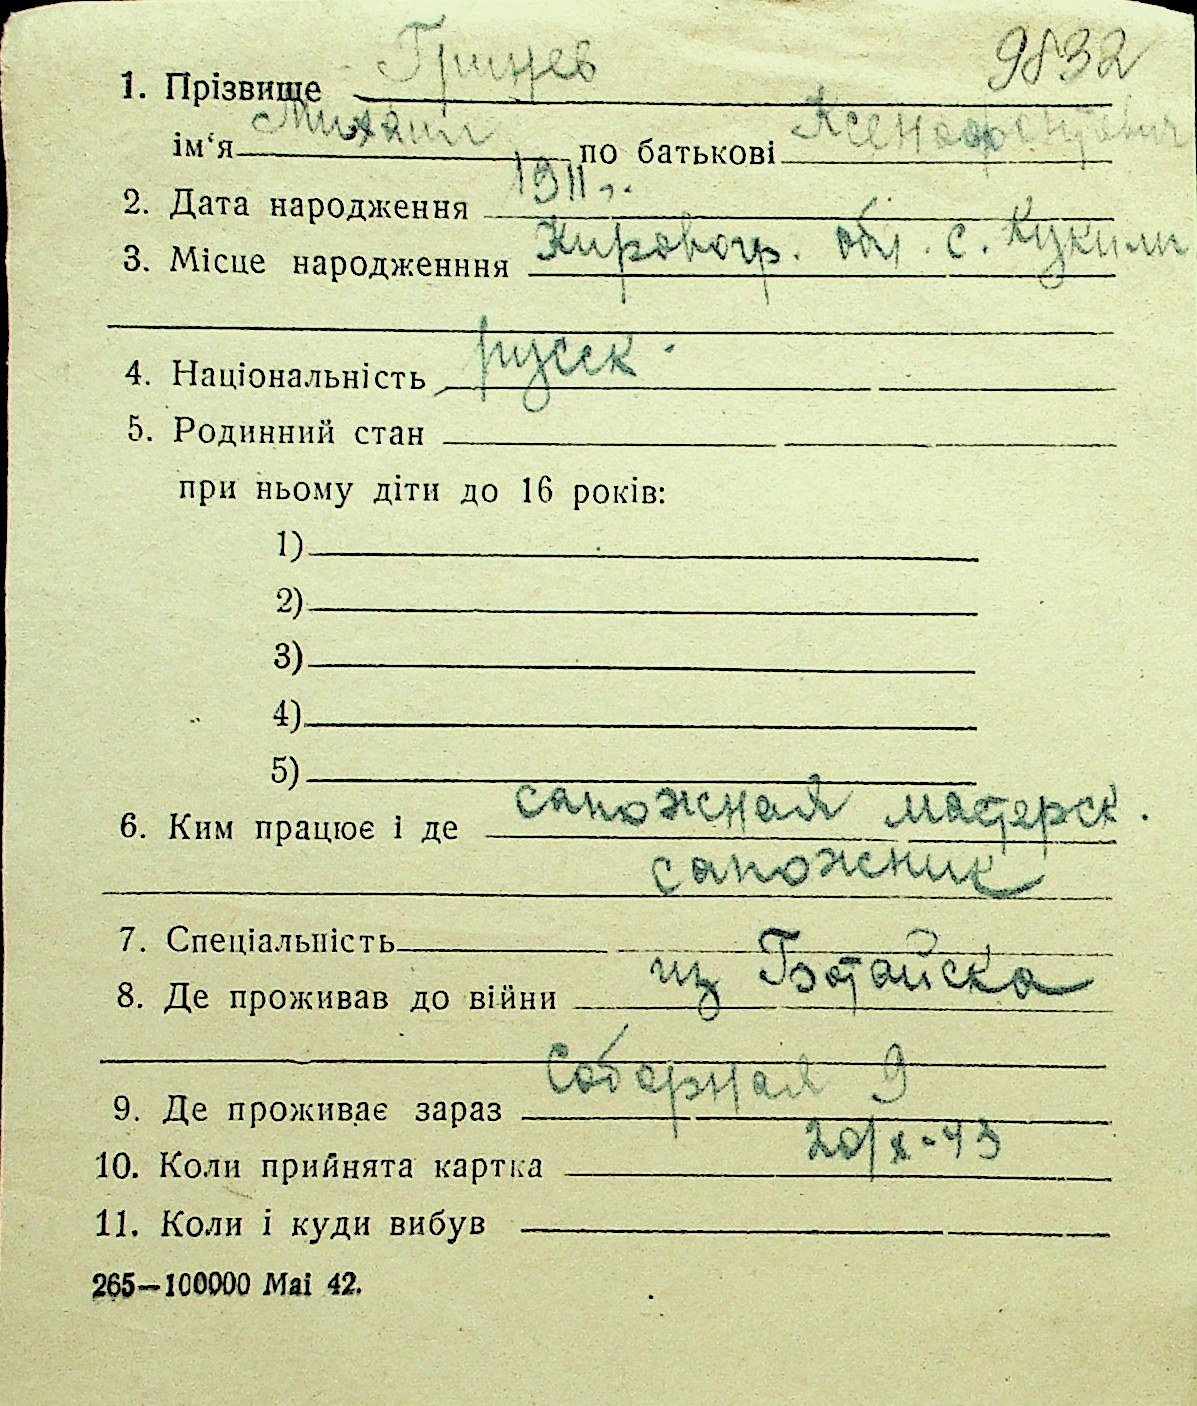 9832
1. Прізвище Гринев
ім‘я Михаил по батькові Ксенофонтович
2. Дата народження 1911 г.
3. Місце народженння Кировогр. обл. с.
4. Національність русск.
5. Родинний стан
при ньому діти до 16 років:
1)
2)
3)
4)
5)
6. Ким працює і де сапожная мастерск.
сапожник
7. Спеціальність
8. Де проживав до війни из Батайска
9. Де проживає зараз Соборная 9
10. Коли прийнята картка 20/X-43
11. Коли і куди вибув
265—100000 Mai 42.